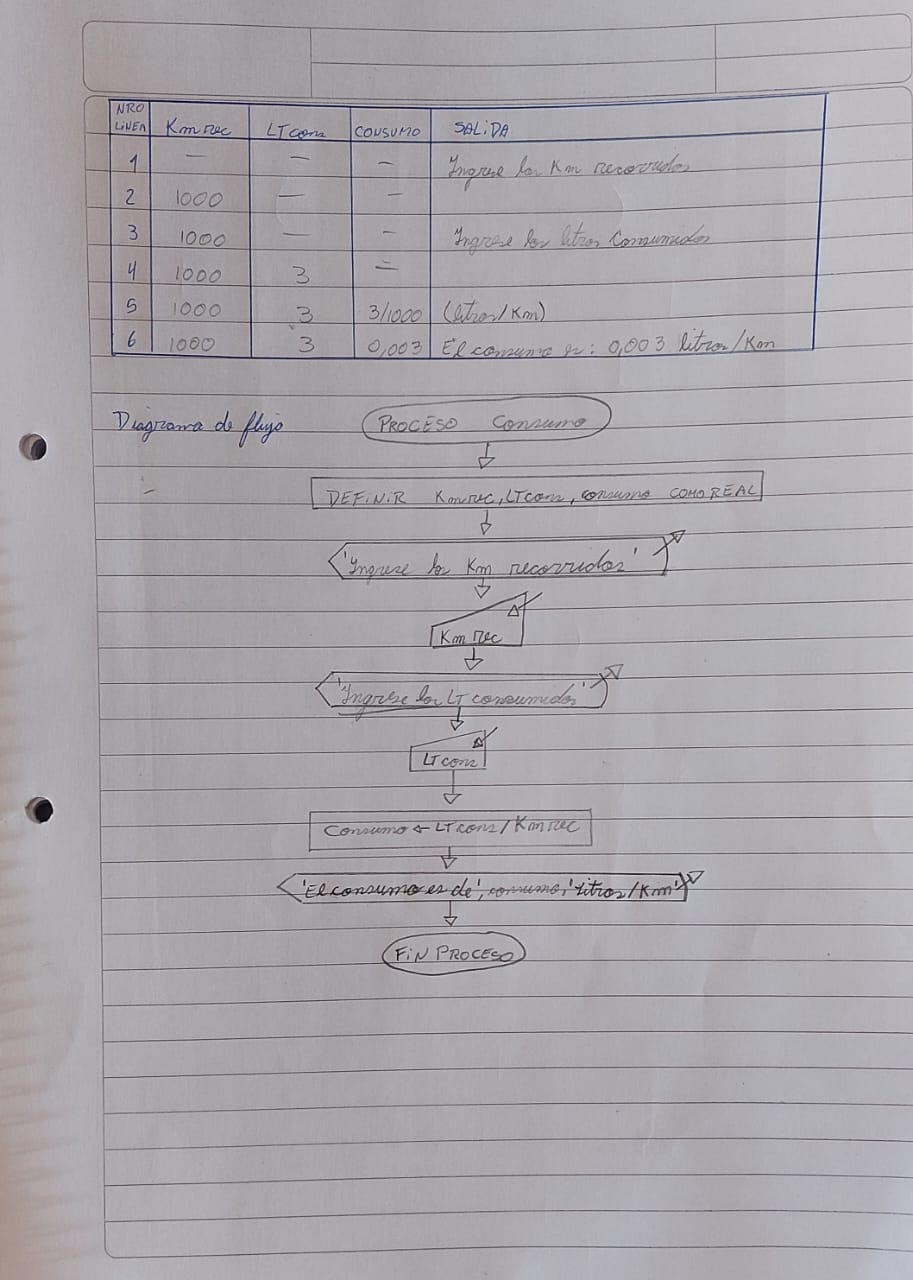 NRO LINEA Km rec LT cons CONSUMO SALIDA
1 — — — Ingrese los Km recorridos
2 1000 — —
3 1000 — — Ingrese los litros Consumidos
4 1000 3 —
5 1000 3 3/1000 (litros/Km)
6 1000 3 0,003 El consumo es: 0,003 litros/Km
Diagrama de flujo
PROCESO Consumo
DEFINIR Kmrec, LTcons, consumo COMO REAL
'Ingrese los Km recorridos'
Km rec
'Ingrese los LT consumidos'
LT cons
Consumo ← LT cons / Km rec
'El consumo es de', consumo, 'litros/Km'
FIN PROCESO